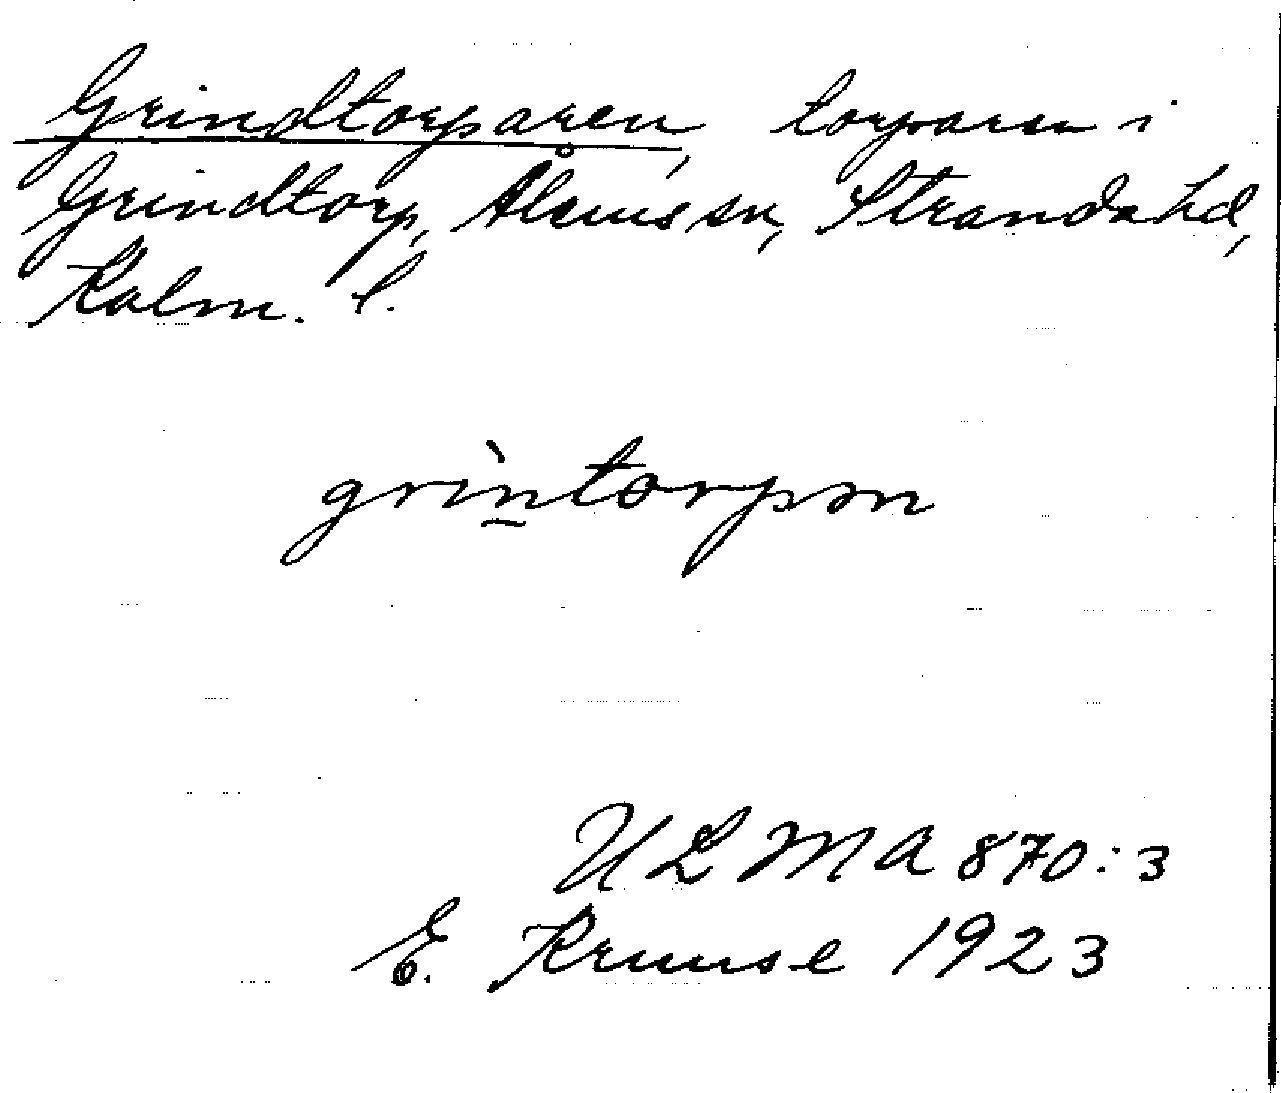 Grindtorparen, torparen i
Grindtorp, Ålems sn, Stranda hd,
Kalm. l.
grìntorpən
ULMA 870:3
E. Kruuse 1923